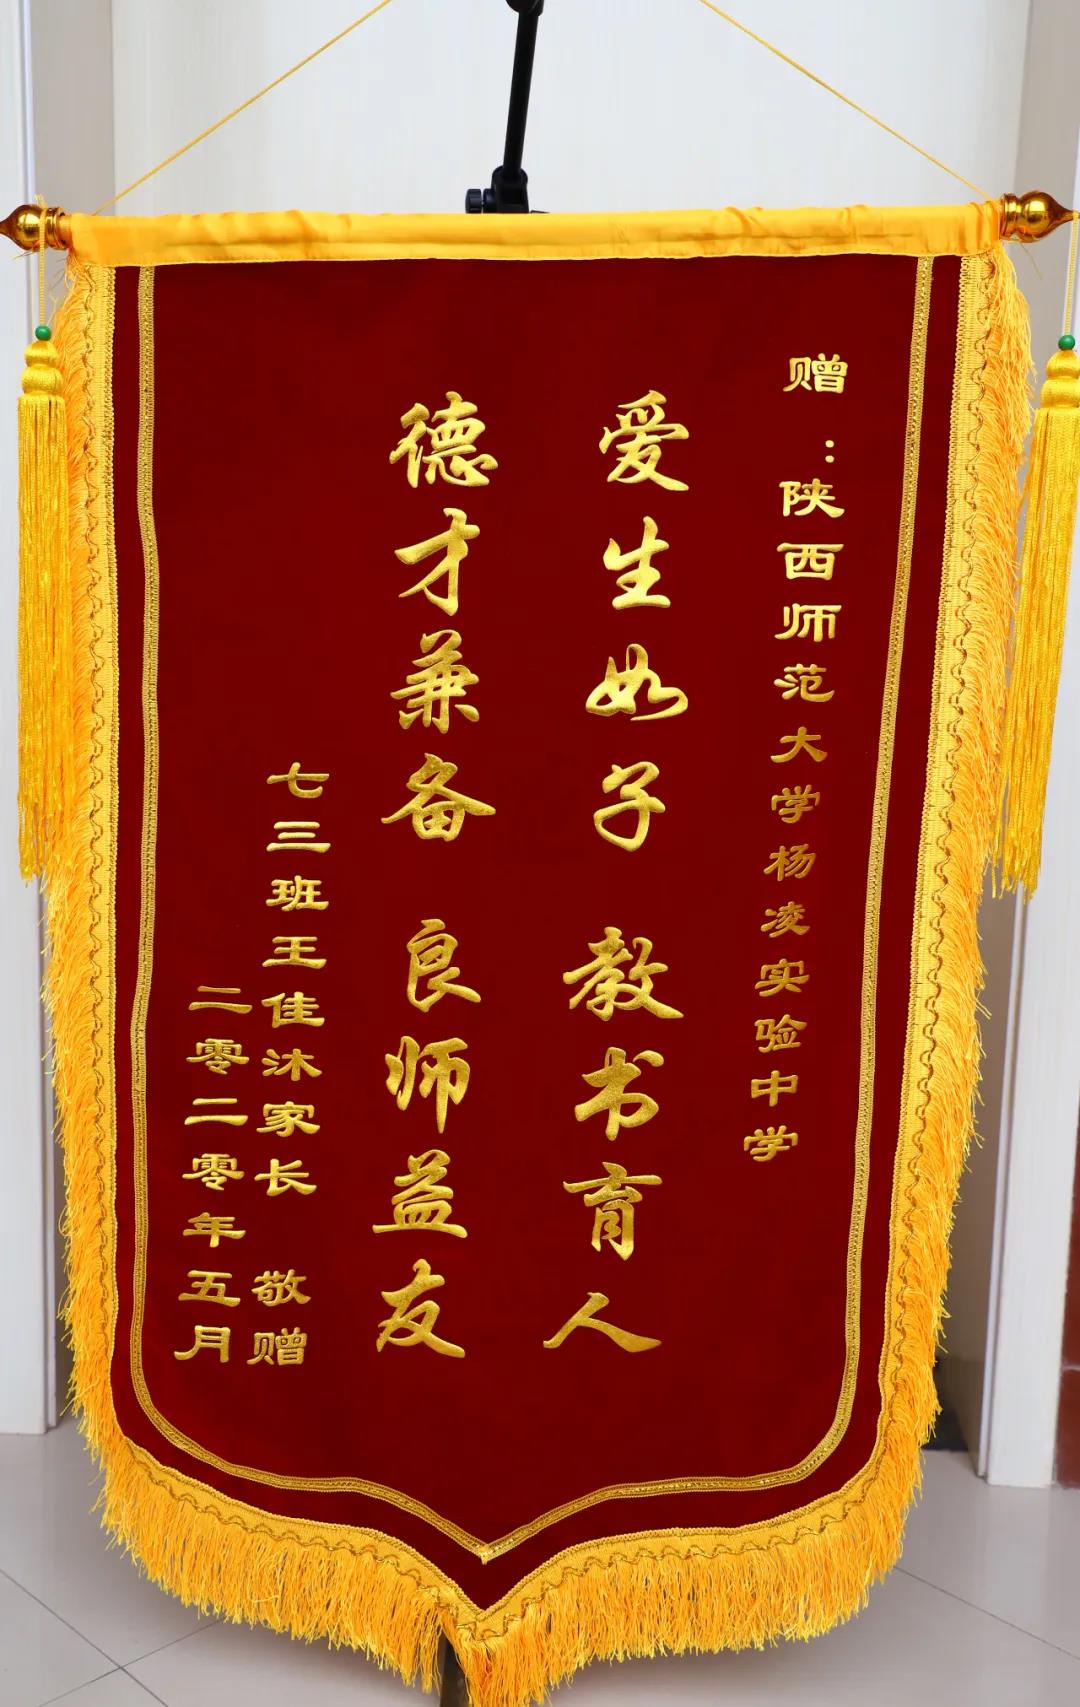 赠：陕西师范大学杨凌实验中学
爱生如子 教书育人
德才兼备 良师益友
七三班王佳沐家长 敬赠
二零二零年五月